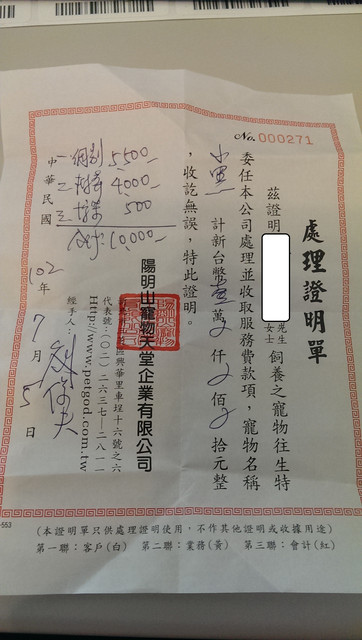 處理證明單
No. 000271
茲證明 先生 女士 飼養之寵物往生特
委任本公司處理並收取服務費款項，寵物名稱
小黑 計新台幣壹萬 仟 佰 拾元整
，收訖無誤，特此證明。
陽明山寵物天堂企業有限公司
興華里車埕十六號之六
代表號：（０２）２６３７－２８１１
Http://www.petgod.com.tw
經手人：
一 個別 5500
二 4000
三 500
合計 10,000
中華民國 102 年 7 月 5 日
-553
(本證明單只供處理證明使用，不作其他證明或收據用途)
第一聯：客戶(白) 第二聯：業務(黃) 第三聯：會計(紅)